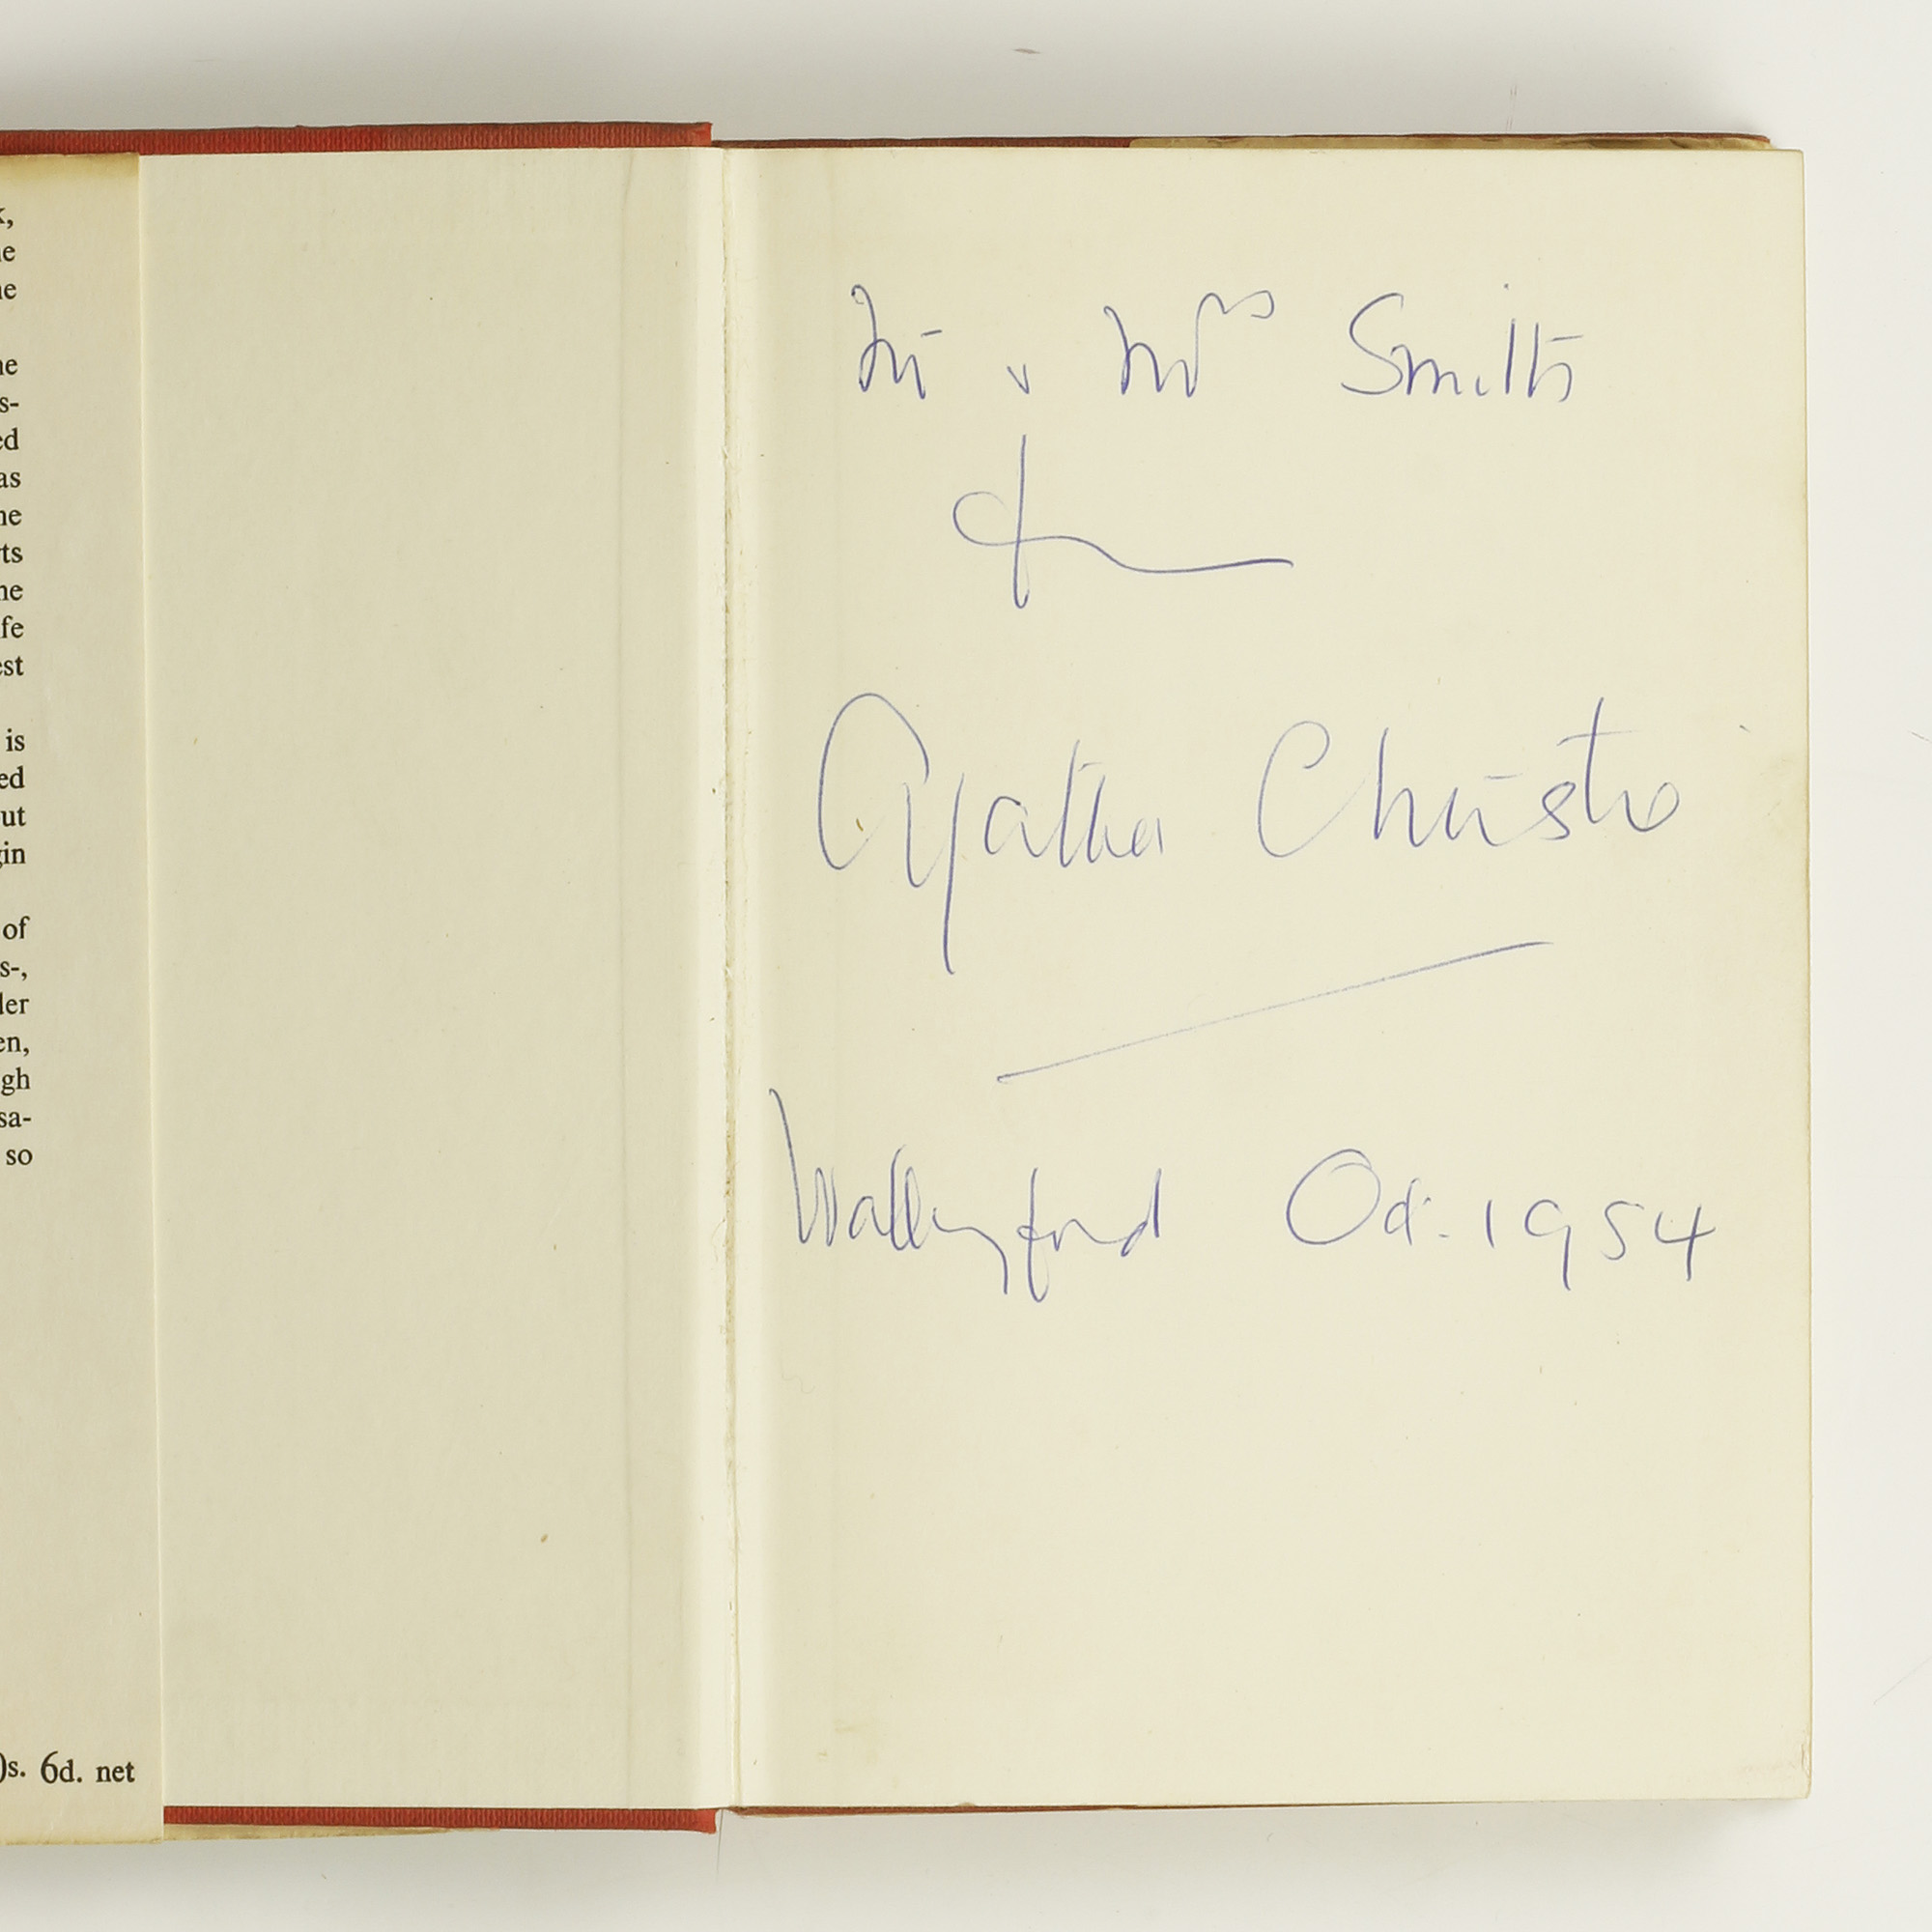 k,
he
he
he
s-
ed
as
he
rts
he
fe
est
is
ed
out
gin
of
s-,
der
en,
gh
sa-
so
0s. 6d. net
Mr & Mrs Smith
from
Agatha Christie
Wallingford Oct. 1954